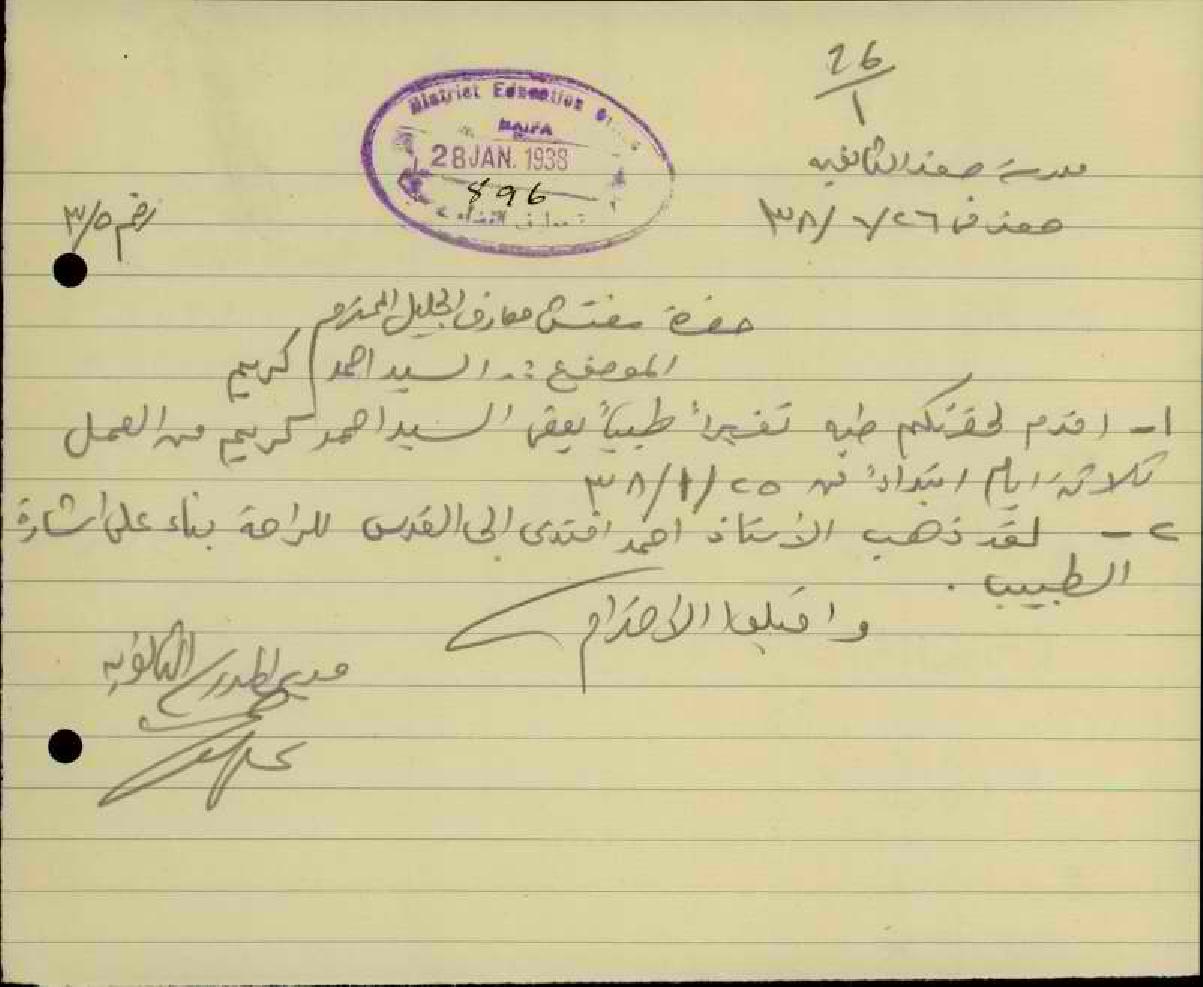 26
1
District Education
HAIFA
28 JAN. 1938
896
مدرسة صفد الثانويه
صفد في ٢٦/١/٣٨
رقم ٣/٥
حضرة مفتش معارف الجليل المحترم
الموضوع :- السيد احمد كريم
١- اقدم لحضرتكم طيه تقريراً طبياً يعفي السيد احمد كريم من العمل
ثلاثة ايام ابتداءً من ٢٥/١/٣٨
٢- لقد ذهب الأستاذ احمد افندى الى القدس للراحة بناء على اشارة
الطبيب .
واقبلوا الاحترام
مدير المدرسة الثانويه